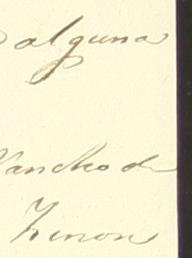 alguna
Rancho de
Zenon